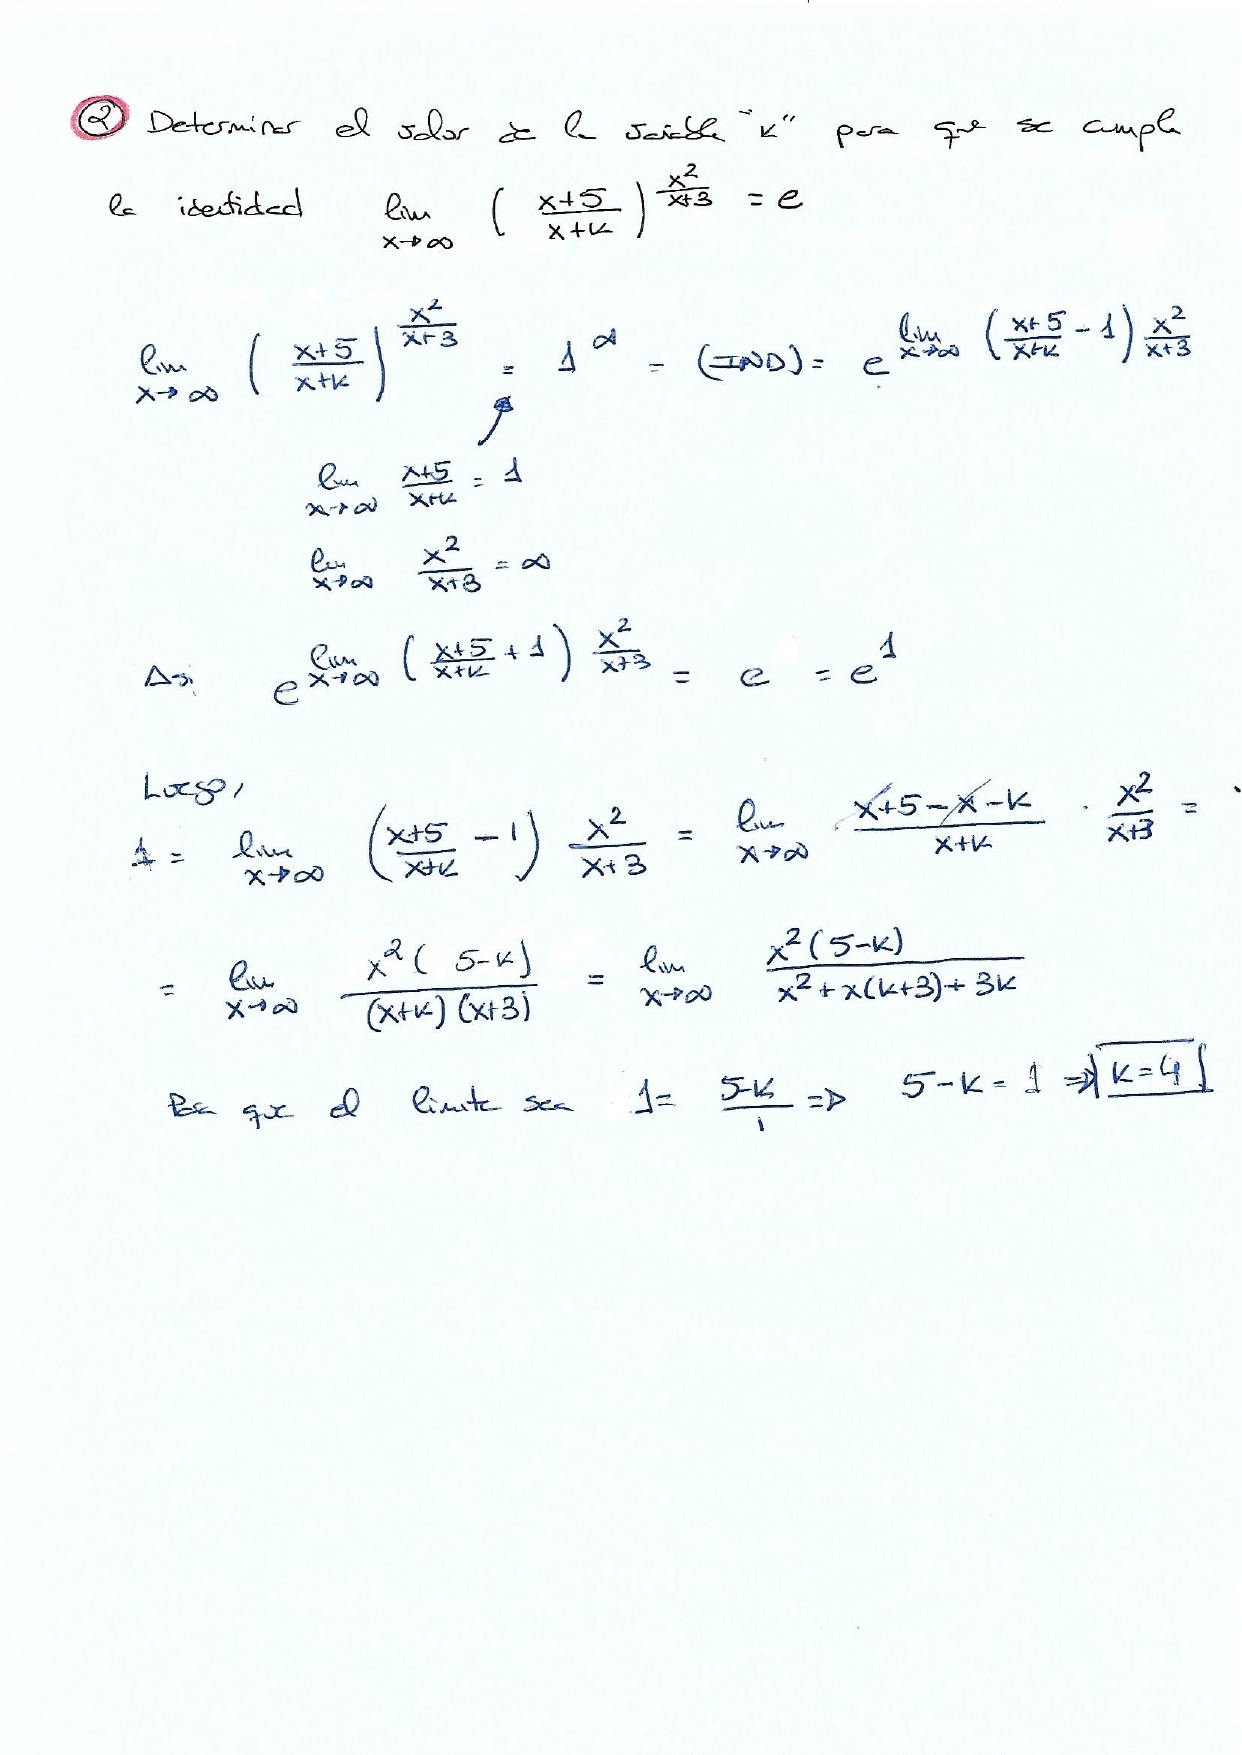 2 Determinar el valor de la variable "k" para que se cumpla
la identidad lim x→∞ ( (x+5)/(x+k) )^(x²/(x+3)) = e
lim x→∞ ( (x+5)/(x+k) )^(x²/(x+3)) = 1^∞ = (IND) = e^( lim x→∞ ( (x+5)/(x+k) - 1 ) x²/(x+3) )
lim x→∞ (x+5)/(x+k) = 1
lim x→∞ x²/(x+3) = ∞
Así e^( lim x→∞ ( (x+5)/(x+k) + 1 ) x²/(x+3) ) = e = e^1
Luego,
1 = lim x→∞ ( (x+5)/(x+k) - 1 ) x²/(x+3) = lim x→∞ (x+5-x-k)/(x+k) · x²/(x+3) =
= lim x→∞ x²(5-k)/((x+k)(x+3)) = lim x→∞ x²(5-k)/(x²+x(k+3)+3k)
Para que el límite sea 1 = (5-k)/1 ⇒ 5-k = 1 ⇒ k=4